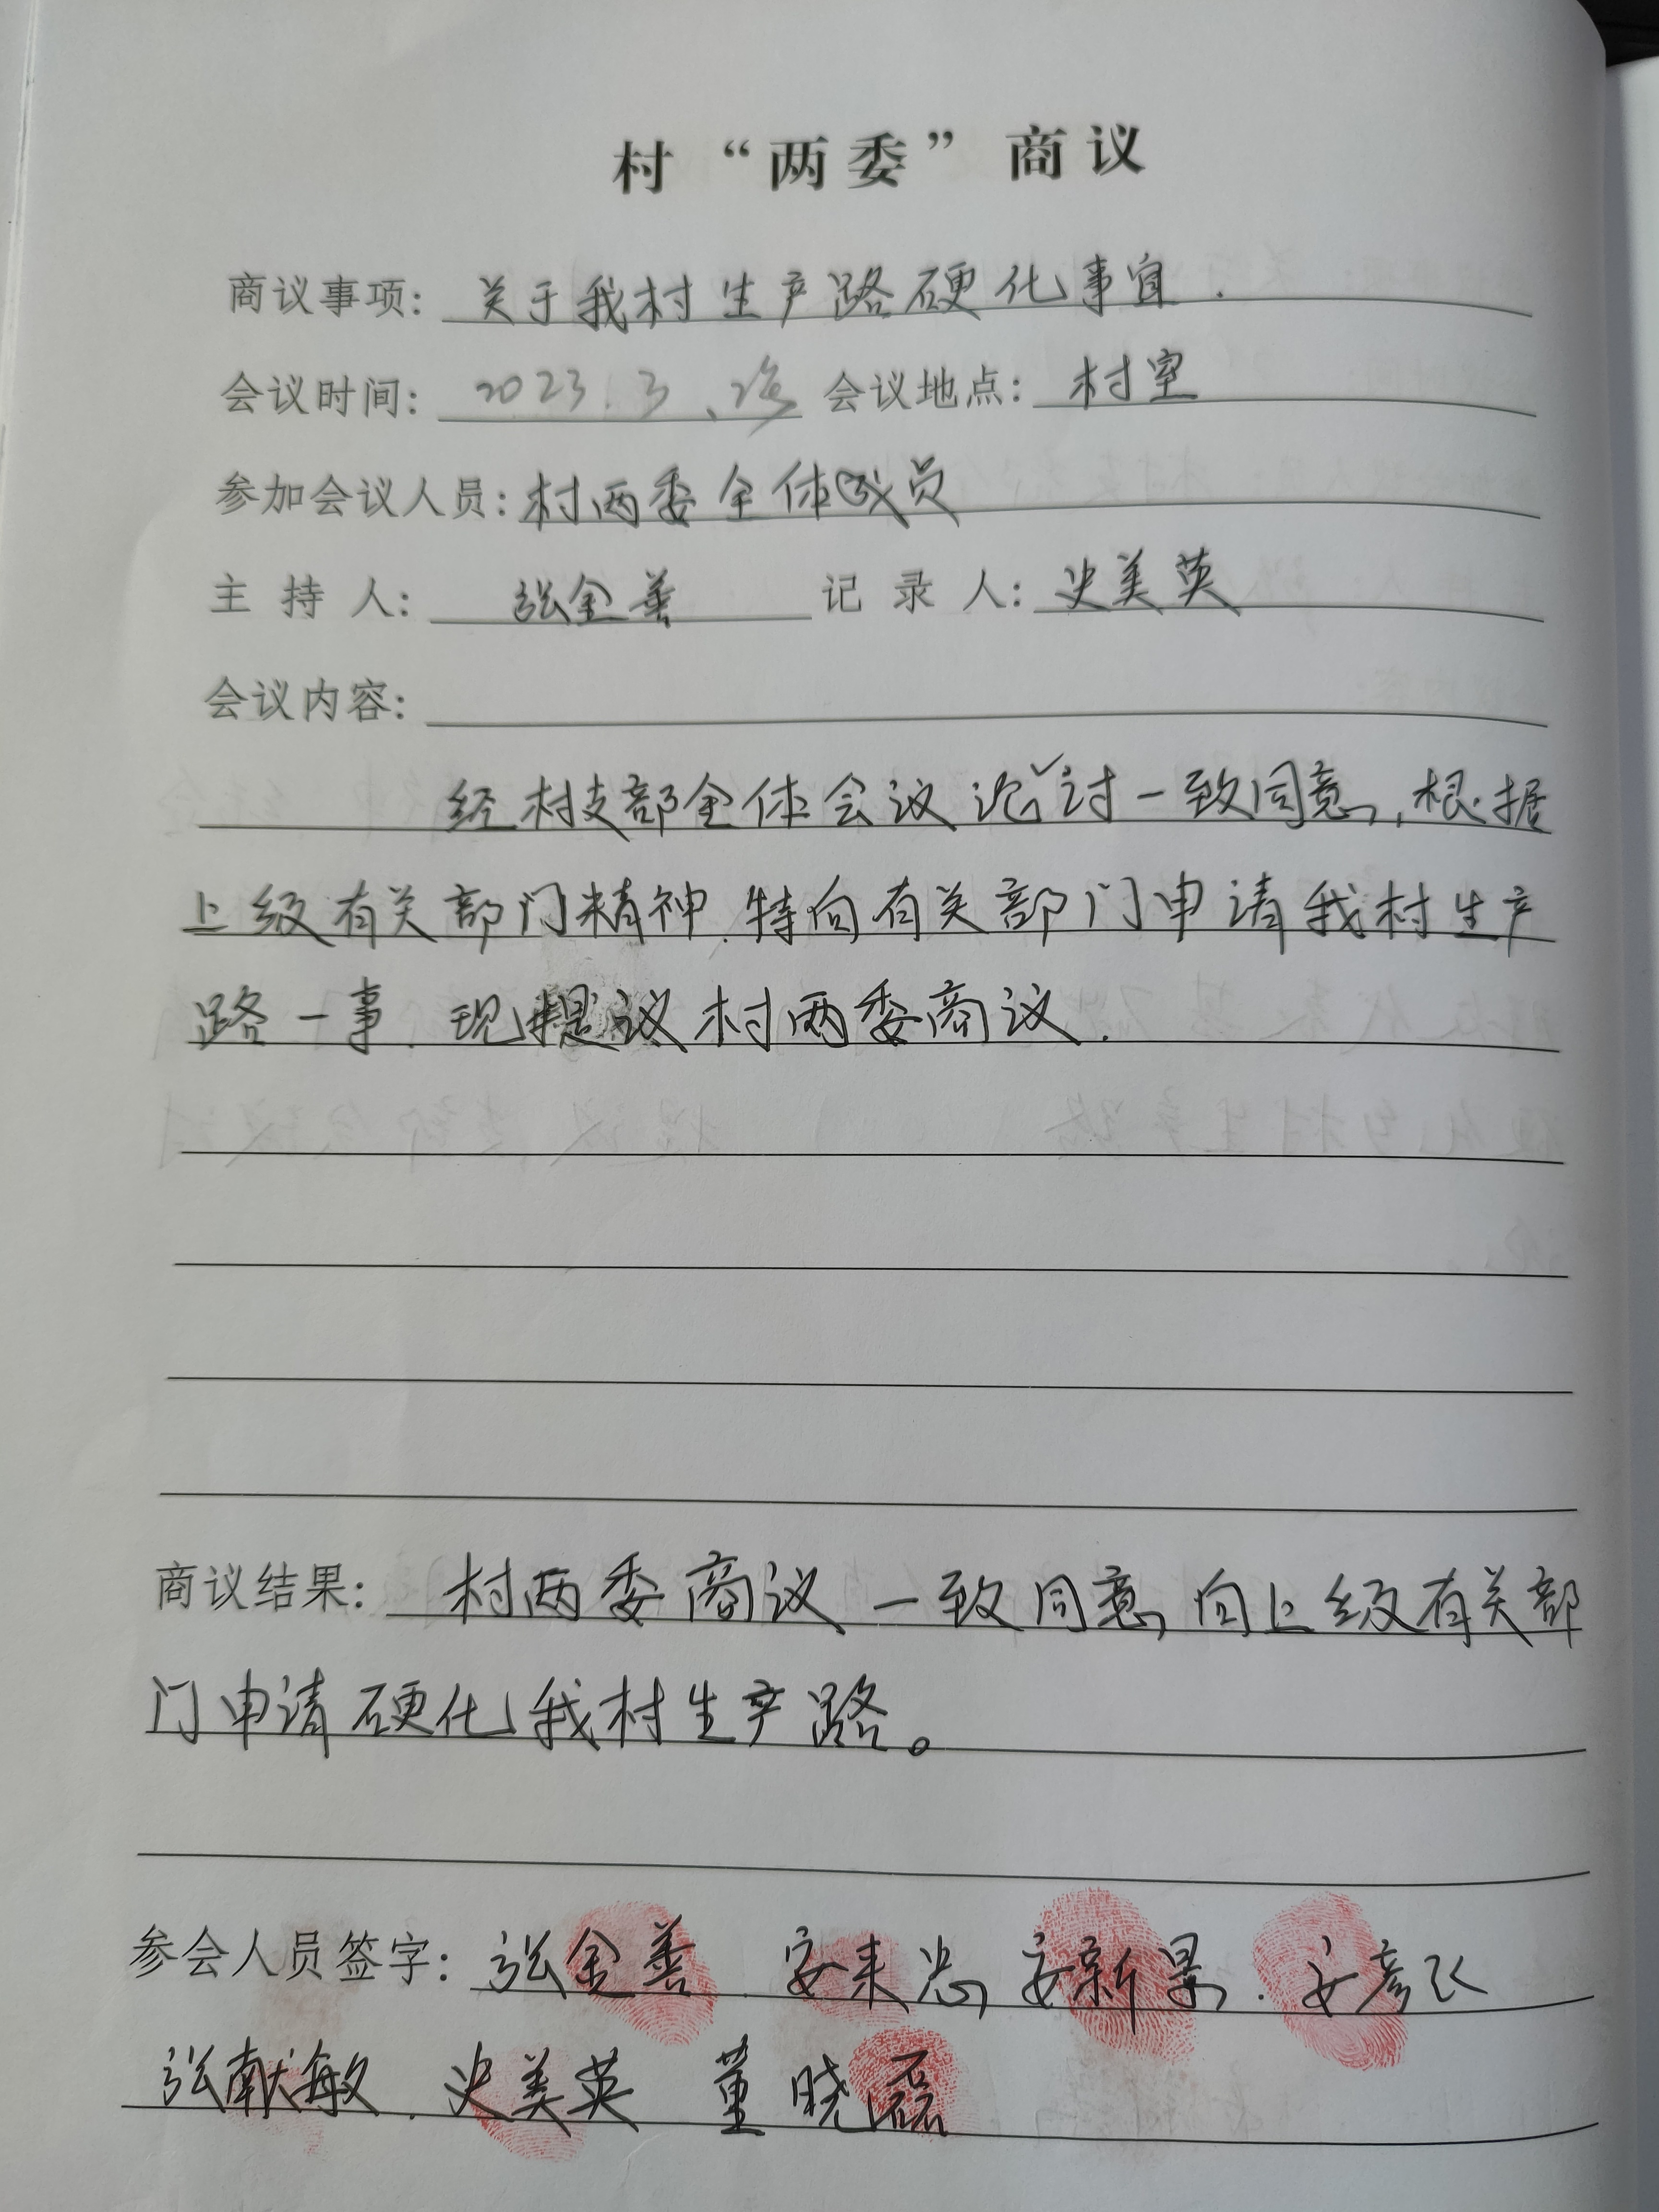 村“两委”商议
商议事项：关于我村生产路硬化事宜.
会议时间：2023.3、 会议地点：村室
参加会议人员：村两委全体成员
主持人：张金善 记录人：史美英
会议内容：
经村支部全体会议论讨一致同意，根据
上级有关部门精神.特向有关部门申请我村生产
路一事.现提议村两委商议.
商议结果：村两委商议一致同意，向上级有关部
门申请硬化我村生产路。
参会人员签字：张金善.安来忠，安新景.安彦
张献敏.史美英 董晓磊